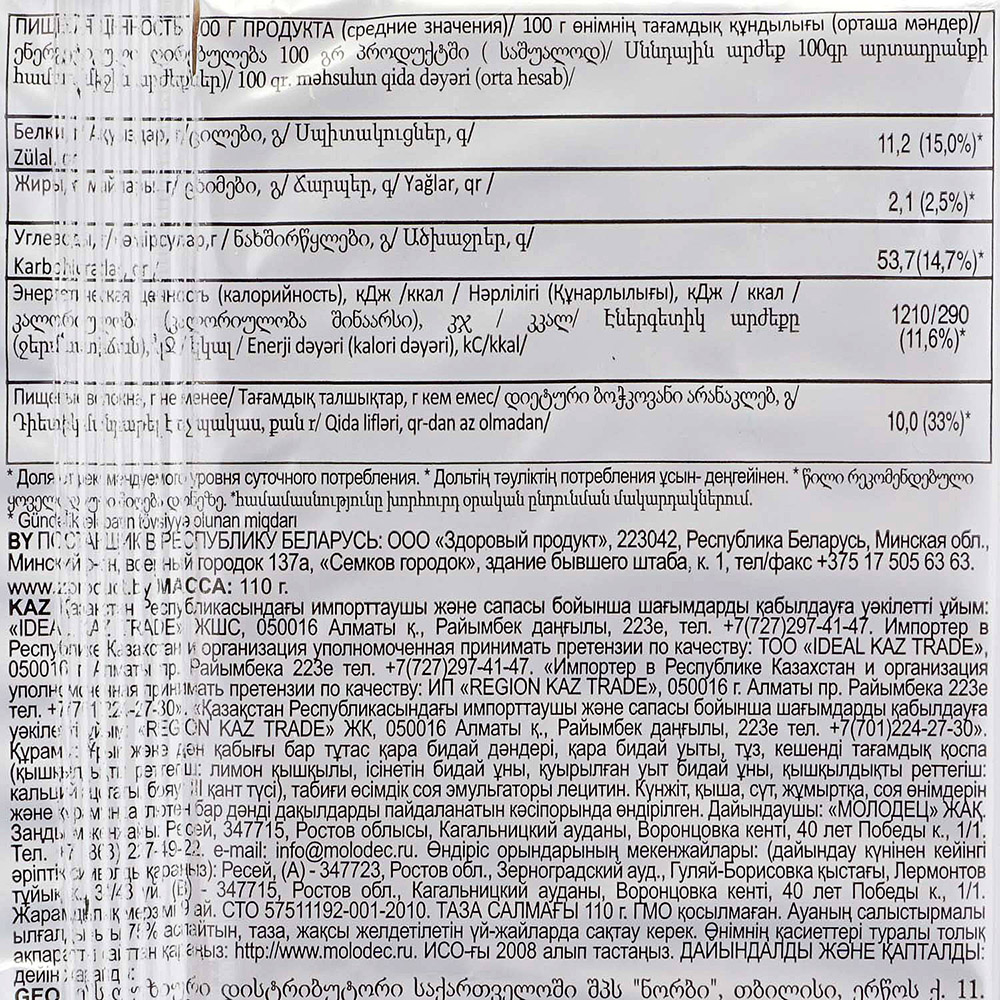 00 Г ПРОДУКТА (средние значения)/ 100 г өнімнің тағамдық құндылығы (орташа мәндер)/
100 გრ პროდუქტში ( საშუალოდ)/ Սննդային արժեք 100գր արտադրանքի
100 qr. məhsulun qida dəyəri (orta hesab)/
Белки, ცილები, გ/ Սպիտակուցներ, գ/
11,2 (15,0%)*
Zülal, qr
Жиры, ცხიმები, გ/ Ճարպեր, գ/ Yağlar, qr /
2,1 (2,5%)*
Углеводы, г / ნახშირწყლები, გ/ Ածխաջրեր, գ/
53,7(14,7%)*
Энергетическая ценность (калорийность), кДж /ккал / Нәрлілігі (Құнарлылығы), кДж / ккал /
1210/290
(კალორიულობა შინაარსი), კჯ / კკალ/ Էներգետիկ արժեքը
(11,6%)*
կՋ / կկալ / Enerji dəyəri (kalori dəyəri), kC/kkal/
Пищевые волокна, г не менее/ Тағамдық талшықтар, г кем емес/ დიეტური ბოჭკოვანი არანაკლებ, გ/
ոչ պակաս, քան г/ Qida lifləri, qr-dan az olmadan/
10,0 (33%)*
* Доля от рекомендуемого уровня суточного потребления. * Дольтің тәуліктің потребления ұсын- деңгейінен. * წილი რეკომენდებული
დონეზე. *համամասնությունը խորհուրդ օրական ընդունման մակարդակներում.
* Gündəlik tələbatın tövsiyyə olunan miqdarı
BY ПОСТАВЩИК В РЕСПУБЛИКУ БЕЛАРУСЬ: ООО «Здоровый продукт», 223042, Республика Беларусь, Минская обл.,
Минский р-н, военный городок 137а, «Семков городок», здание бывшего штаба, к. 1, тел/факс +375 17 505 63 63.
www.zproduct.by МАССА: 110 г.
KAZ Қазақстан Республикасындағы импорттаушы және сапасы бойынша шағымдарды қабылдауға уәкілетті ұйым:
«IDEAL KAZ TRADE» ЖШС, 050016 Алматы қ., Райымбек даңғылы, 223е, тел. +7(727)297-41-47. Импортер в
Республике Казахстан и организация уполномоченная принимать претензии по качеству: ТОО «IDEAL KAZ TRADE»,
050016 г. Алматы пр. Райымбека 223е тел. +7(727)297-41-47. «Импортер в Республике Казахстан и организация
уполномоченная принимать претензии по качеству: ИП «REGION KAZ TRADE», 050016 г. Алматы пр. Райымбека 223е
тел. +7(701)224-27-30». «Қазақстан Республикасындағы импорттаушы және сапасы бойынша шағымдарды қабылдауға
уәкілетті ұйым: «REGION KAZ TRADE» ЖК, 050016 Алматы қ., Райымбек даңғылы, 223е тел. +7(701)224-27-30».
Құрамы: Ұрық және дән қабығы бар тұтас қара бидай дәндері, қара бидай уыты, тұз, кешенді тағамдық қоспа
(қышқылдықты реттегіш: лимон қышқылы, ісінетін бидай ұны, қуырылған уыт бидай ұны, қышқылдықты реттегіш:
кальций қант түсі), табиғи өсімдік соя эмульгаторы лецитин. Күнжіт, қыша, сүт, жұмыртқа, соя өнімдерін
және құрамында глютен бар дәнді дақылдарды пайдаланатын кәсіпорында өндірілген. Дайындаушы: «МОЛОДЕЦ» ЖАҚ.
Заңды мекенжайы: Ресей, 347715, Ростов облысы, Кагальницкий ауданы, Воронцовка кенті, 40 лет Победы к., 1/1.
Тел. 227-49-22. e-mail: info@molodec.ru. Өндіріс орындарының мекенжайлары: (дайындау күнінен кейінгі
әріптік символды қараңыз): Ресей, (А) - 347723, Ростов обл., Зерноградский ауд., Гуляй-Борисовка қыстағы, Лермонтов
тұйық к., 31/43 үй. (В) - 347715, Ростов обл., Кагальницкий ауданы, Воронцовка кенті, 40 лет Победы к., 1/1.
Жарамдылық мерзімі 9 ай. СТО 57511192-001-2010. ТАЗА САЛМАҒЫ 110 г. ГМО қосылмаған. Ауаның салыстырмалы
ылғалдылығы 75% аспайтын, таза, жақсы желдетілетін үй-жайларда сақтау керек. Өнімнің қасиеттері туралы толық
ақпаратты сайттан қараңыз: http://www.molodec.ru. ИСО-ғы 2008 алып тастаңыз. ДАЙЫНДАЛДЫ ЖӘНЕ ҚАПТАЛДЫ:
дейін жарамды:
GEO დისტრიბუტორი საქართველოში შპს "ნორბი", თბილისი, ერწოს ქ. 11.